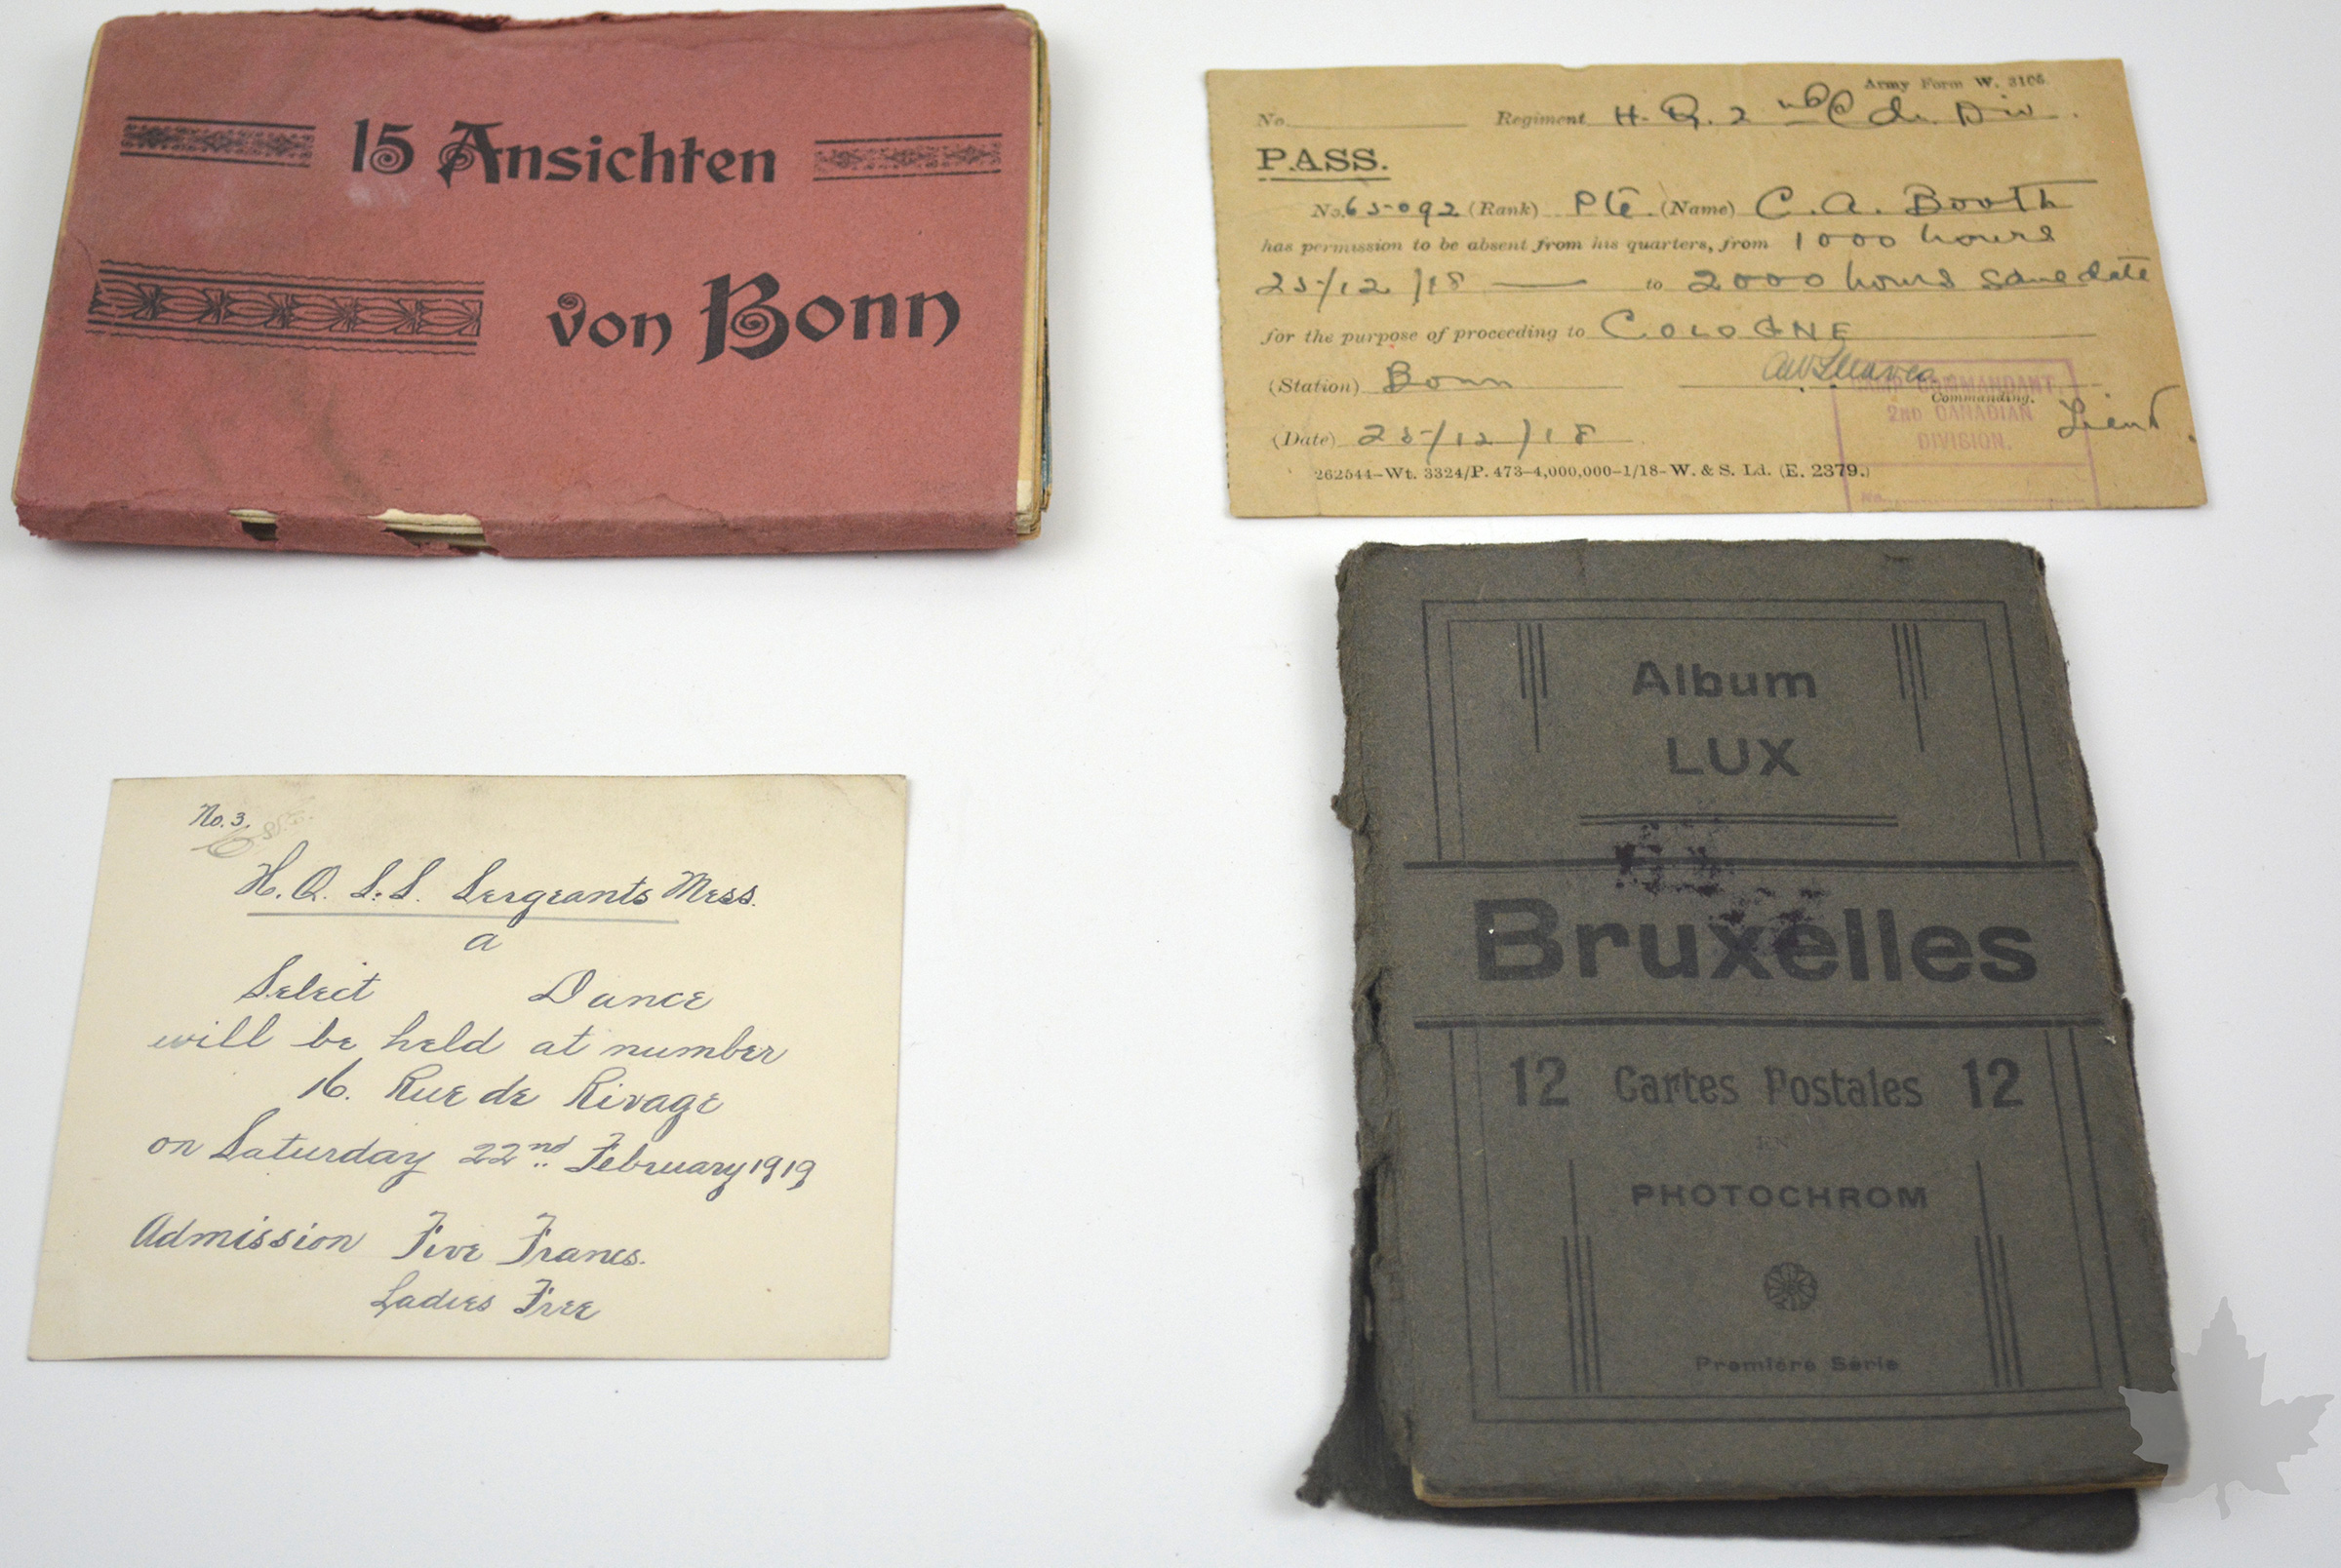 15 Ansichten
von Bonn
Army Form W. 3105.
No. Regiment H. Q. 2nd Cdn. Div.
PASS.
No. 65092 (Rank) Pte. (Name) C. A. Booth
has permission to be absent from his quarters, from 1000 hours
25/12/18 — to 2000 hours same date
for the purpose of proceeding to COLOGNE
(Station) Bonn
Commanding.
Lieut.
(Date) 25/12/18
COMMANDANT,
2ND CANADIAN
DIVISION.
No.
262544–Wt. 3324/P. 473–4,000,000–1/18–W. & S. Ld. (E. 2379.)
No. 3.
H. Q. S.S. Sergeants Mess.
a
Select Dance
will be held at number
16. Rue de Rivage
on Saturday 22nd February 1919
Admission Five Francs.
Ladies Free
Album
LUX
Bruxelles
12 Cartes Postales 12
EN
PHOTOCHROM
Première Série